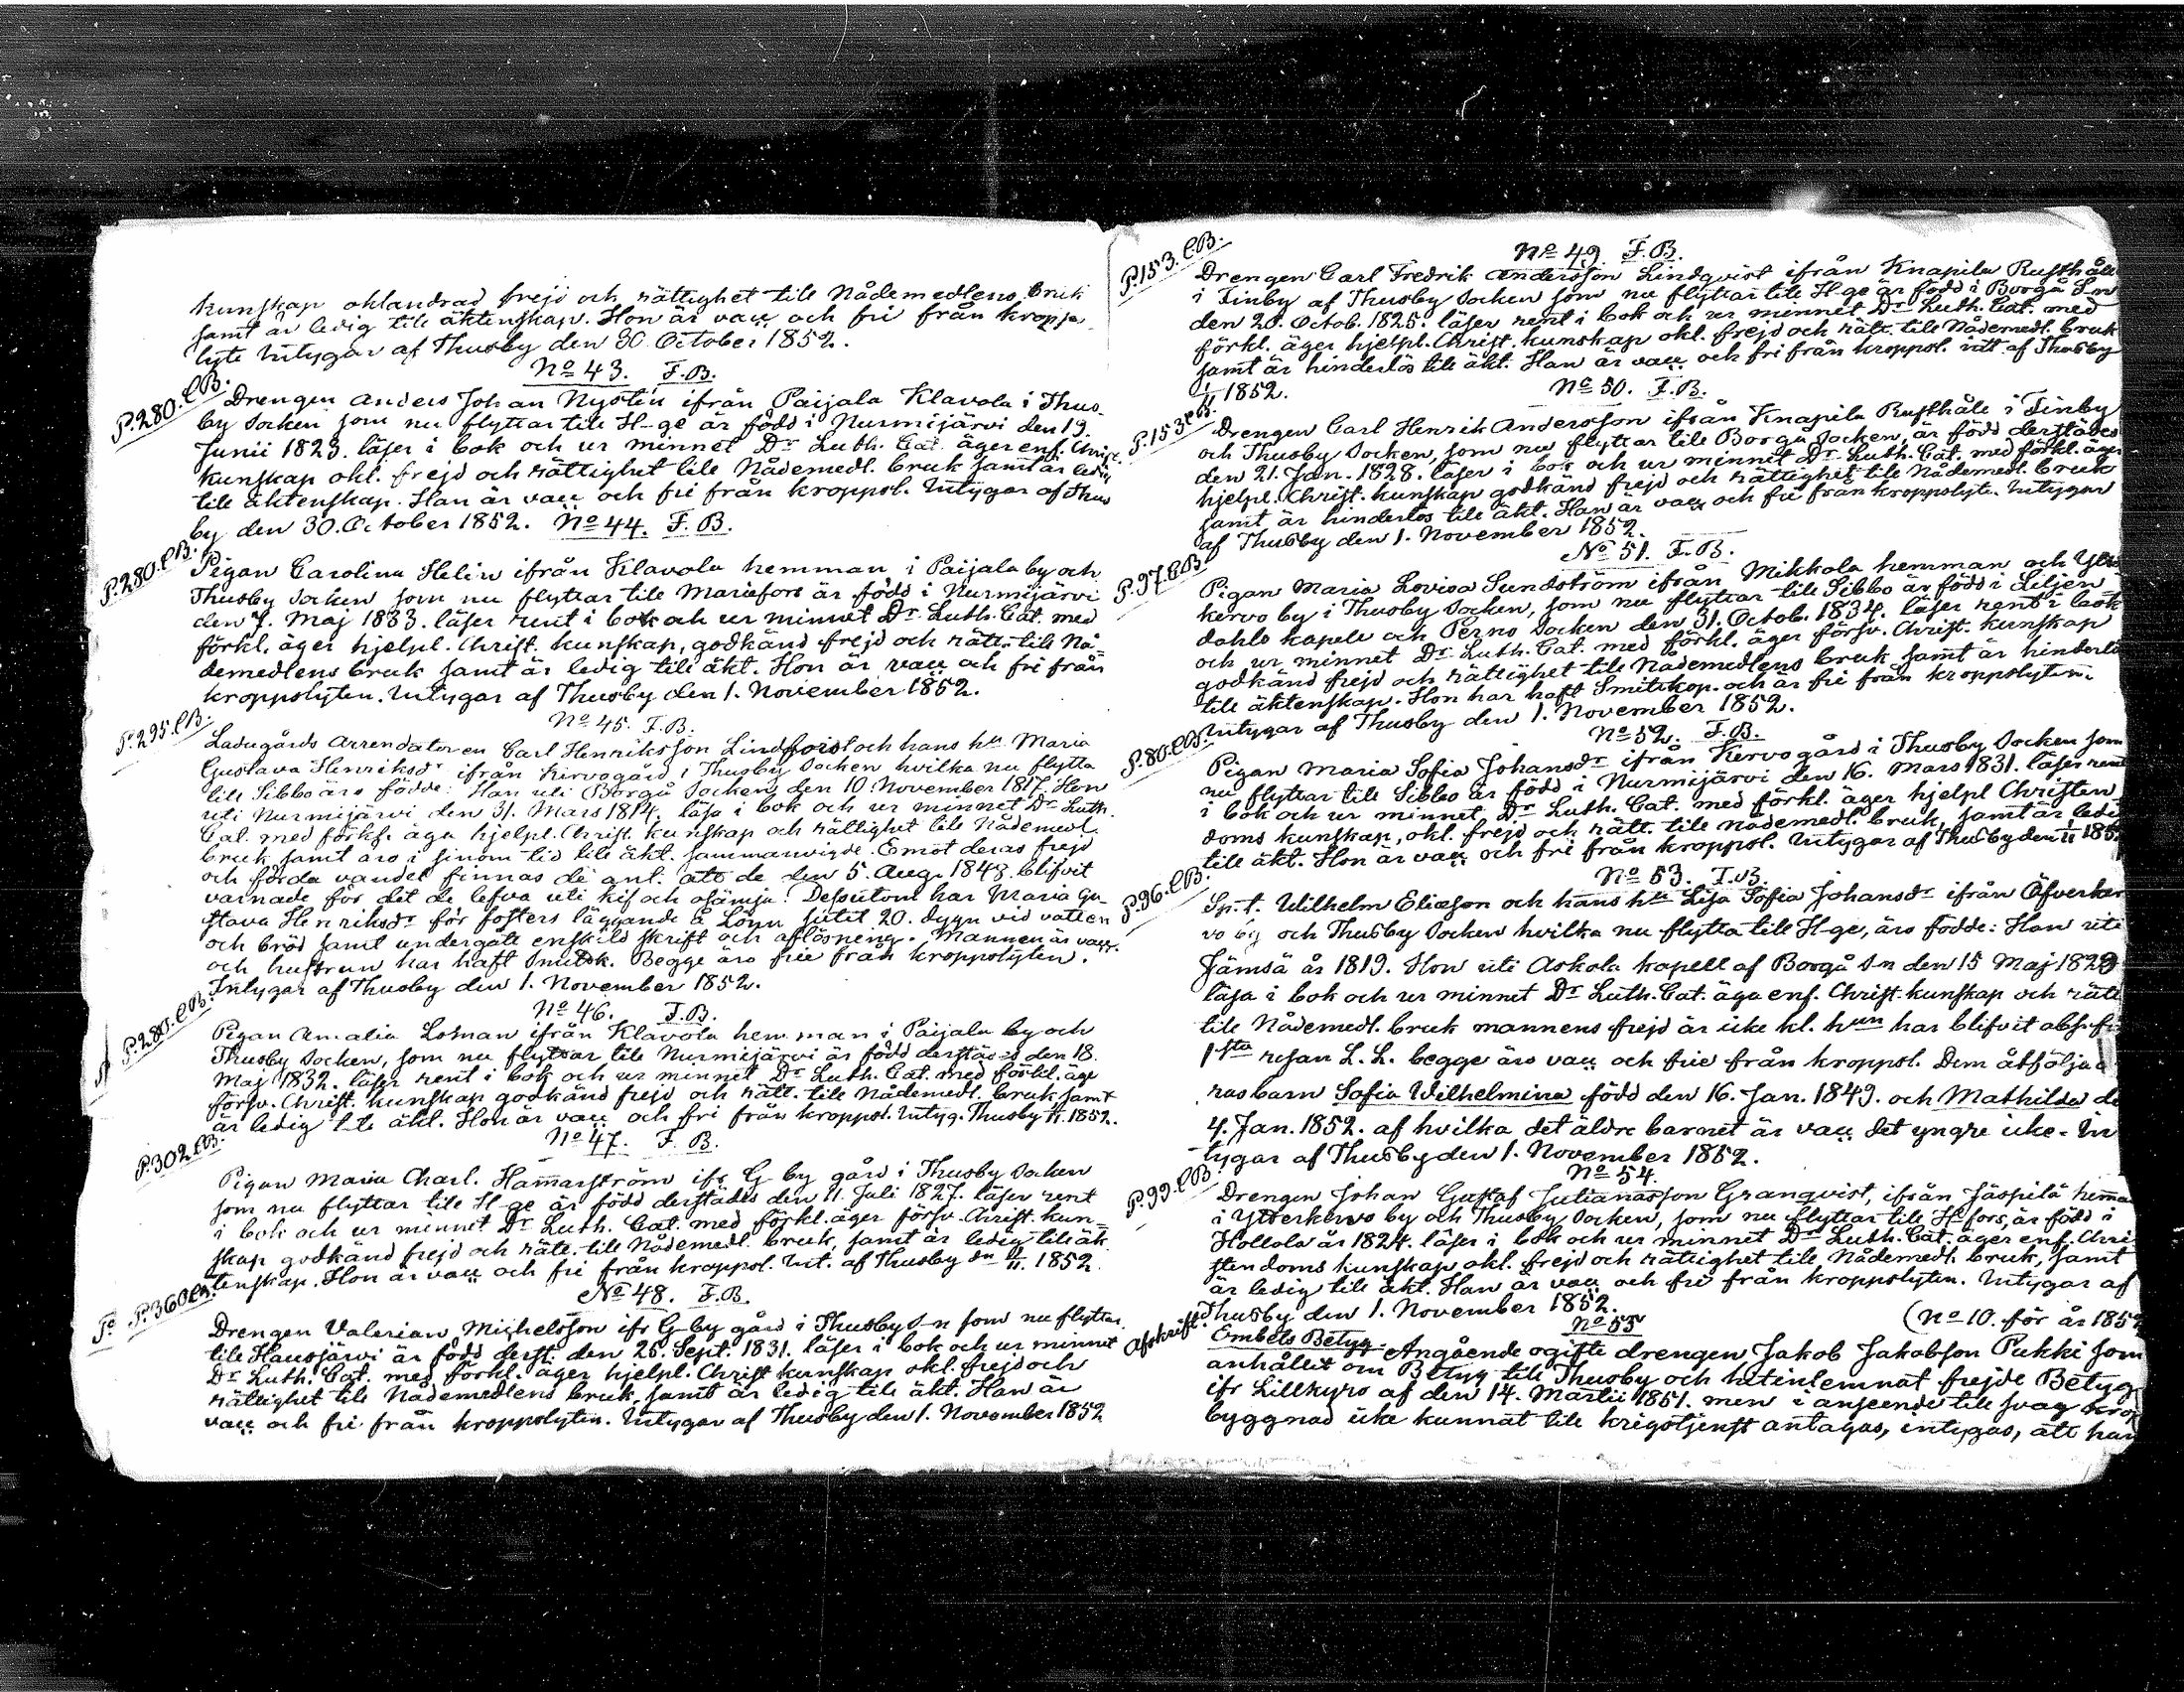 kunskap oklandrad frejd och rättighet till Nådemedlens bruk
samt är ledig till äktenskap. Hon är vacc. och fri från kropps
lyte Intygar af Thusby den 30 October 1852.
No 43. F.B.
P. 280. C.B.
Drengen Anders Johan Nystin ifrån Paijala Klavola i Thus-
by Socken som nu flyttar till H-ge är född i Nurmijärvi den 19
Junii 1823. läser i bok och ur minnet Dr Luth. Cat. äger enf. Christ.
kunskap okl. frejd och rättighet till Nådemedl. bruk samt är ledig
till äktenskap. Han är vacc. och fri från kroppsl. Intygar af Thus
by den 30. October 1852. No 44. F.B.
P. 280. C.B.
Pigan Carolina Helin ifrån Klavola hemman i Paijala by och
Thusby Socken som nu flyttar till Mariefors är född i Nurmijärvi
den 7. Maj 1833. läser rent i bok och ur minnet Dr Luth. Cat. med
förkl. äger hjelpl. Christ. kunskap, godkänd frejd och rätt. till Nå-
demedlens bruk samt är ledig till äkt. Hon är vacc. och fri från
kroppslyten. Intygar af Thusby den 1. November 1852.
No 45. F.B.
P. 295. C.B.
Ladugårds Arrendatoren Carl Henriksson Lindforst och hans hu Maria
Gustava Henriksdr ifrån Kervogård i Thusby Socken hvilka nu flytta
till Sibbo äro födde: Han uti Borgå Socken den 10. November 1817. Hon
uti Nurmijärvi den 31. Mars 1814. läsa i bok och ur minnet Dr Luth.
Cat. med förkl. äga hjelpl. Christ. kunskap och rättighet till Nådemedl.
bruk samt äro i sinom tid till äkt. sammanvigde. Emot deras frejd
och förda vandel finnas de ant. att de den 5. Aug. 1848. blifvit
varnade för det de lefva uti kif och osämja. Dessutom har Maria Gu-
stava Henriksdr för fosters läggande å Lönn sutit 20. dygn vid vatten
och bröd samt undergått enskild skrift och aflösning. Mannen är vacc.
och hustrun har haft Smitsk. Begge äro frie från kroppslyten.
Intygar af Thusby den 1. November 1852.
No 46. F.B.
P. 280. C.B.
Pigan Amalia Loman ifrån Klavola hemman i Paijala by och
Thusby Socken, som nu flyttar till Nurmijärvi är född derstädes den 18.
Maj 1832. läser rent i bok och ur minnet Dr Luth. Cat. med förkl. äge
försv. Christ. kunskap godkänd frejd och rätt. till Nådemedl. bruk samt
är ledig till äkt. Hon är vacc. och fri från kroppsl. Intyg. Thusby 1/11. 1852.
No 47. F.B.
P. 302 C.B.
Pigan Maria Charl. Hammarström ifr G-by gård i Thusby Socken
som nu flyttar till H-ge är född derstädes den 11. Juli 1827. läser rent
i bok och ur minnet Dr Luth. Cat. med förkl. äger försv. Christ. kun-
skap godkänd frejd och rätt. till Nådemedl. bruk, samt är ledig till äk
tenskap. Hon är vacc. och fri från kroppsl. Int. af Thusby dn 1/11. 1852.
No 48. F.B.
P. 360 C.B.
Drengen Valerian Michelsson ifr G-by gård i Thusby S-n som nu flyttar
till Hausjärvi är född derst. den 26. Sept. 1831. läser i bok och ur minnet
Dr Luth. Cat. med förkl. äger hjelpl. Christ kunskap okl. frejd och
rättighet till Nådemedlens bruk, samt är ledig till äkt. Han är
vacc. och fri från kroppslyten. Intygar af Thusby den 1. November 1852
No 49 F.B.
P. 153. C.B.
Drengen Carl Fredrik Andersson Lindqvist ifrån Knapila Rusthåll
i Finby af Thusby Socken som nu flyttar till H-ge är född i Borgå S-n
den 20. Octob. 1825. läser rent i bok och ur minnet Dr Luth. Cat. med
förkl. äger hjelpl. Christ. kunskap okl. frejd och rätt. till Nådemedl. bruk
samt är hinderlös till äkt. Han är vacc. och fri från kroppsl. intt. af Thusby
1/11 1852.
No 50. F.B.
P. 153 C.B.
Drengen Carl Henrik Andersson ifrån Knapila Rusthåll i Finby
och Thusby Socken, som nu flyttar till Borgå Socken, är född derstädes
den 21. Jan. 1828. läser i bok och ur minnet Dr Luth. Cat. med förkl. äger
hjelpl. Christ. kunskap godkänd frejd och rättighet till Nådemedl. bruk
samt är hinderlös till äkt. Han är vacc. och fri från kroppslyte. Intygar
af Thusby den 1. November 1852.
No 51. F.B.
P. 97. C.B.
Pigan Maria Lovisa Sundström ifrån Mikkola hemman och Ytter
kervo by i Thusby Socken, som nu flyttar till Sibbo är född i Liljen-
dahls kapell och Perno Socken den 31. Octob. 1834. läser rent i bok
och ur minnet Dr Luth. Cat. med förkl. äger försv. Christ. kunskap
godkänd frejd och rättighet till Nådemedlens bruk samt är hinderlö
till äktenskap. Hon har haft Smitskop. och är fri från kroppslyten.
Intygar af Thusby den 1. November 1852.
No 52. F.B.
P. 80. C.B.
Pigan Maria Sofia Johansdr ifrån Kervogård i Thusby Socken som
nu flyttar till Sibbo är född i Nurmijärvi den 16. Mars 1831. läser rent
i bok och ur minnet, Dr Luth. Cat. med förkl. äger hjelpl Christen
doms kunskap, okl. frejd och rätt. till Nådemedl. bruk, samt är ledig
till äkt. Hon är vacc. och fri från kroppsl. Intygar af Thusby den 1/11 185
No 53. F.B.
P. 96. C.B.
Sp.t. Wilhelm Eliasson och hans hu Lisa Sofia Johansdr ifrån Öfverker
vo by och Thusby Socken hvilka nu flytta till H-ge, äro födde: Han uti
Jämsä år 1819. Hon uti Askola kapell af Borgå S-n den 15 Maj 1829
läsa i bok och ur minnet Dr Luth. Cat. äga enf. Christ. kunskap och rätt
till Nådemedl. bruk mannens frejd är icke kl. hun har blifvit abs. fr
1sta resan L. L. begge äro vacc. och frie från kroppsl. Dem åtfölja
ras barn Sofia Wilhelmina född den 16. Jan. 1849. och Mathilda de
4. Jan. 1852. af hvilka det äldre barnet är vacc. det yngre icke. In
tygar af Thusby den 1. November 1852.
No 54.
P. 99. C.B.
Drengen Johan Gustaf Julianasson Granqvist, ifrån Jäspilä hemma
i Ytterkervo by och Thusby Socken, som nu flyttar till H-fors, är född i
Hollola år 1824. läser i bok och ur minnet Dr Luth. Cat. äger enf. Chri
stendoms kunskap okl. frejd och rättighet till Nådemedl. bruk, samt
är ledig till äkt. Han är vacc. och fri från kroppslyten. Intygar af
Thusby den 1. November 1852.
No 55
(No 10. för år 1852
Afskrift
Embets Betyg Angående ogifte drengen Jakob Jakobson Pukki som
anhållit om Betyg till Thusby och hitenlemnat frejde Betyg
ifr Lillkyro af den 14. Martii 1851. men i anseende till svag krop
byggnad icke kunnat till krigstjenst antagas, intygas, att han